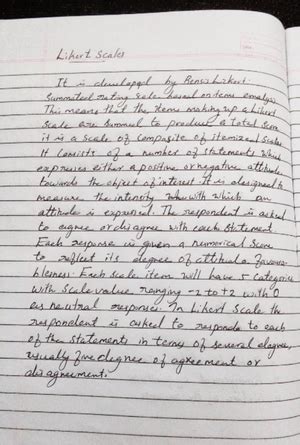 Likert Scales
It is developed by Rensis Likert.
Summated rating scale based on items analysis
This means that the items making up a Likert
Scale are summed to produce a total score
it is a scale of composite of itemized scales
It consists of a number of statements which
expresses either a positive or negative attitude
towards the object of interest. It is designed to
measure the intensity with which an
attitude is expressed. The respondent is asked
to agree or disagree with each statement
Each response is given a numerical score
to reflect its degree of attitude favoura-
bleness. Each scale item will have 5 categories
with scale value ranging -2 to +2 with 0
as neutral response. In Likert Scale the
respondent is asked to responde to each
of the statements in terms of several degree,
usually five degree of agreement or
disagreement.